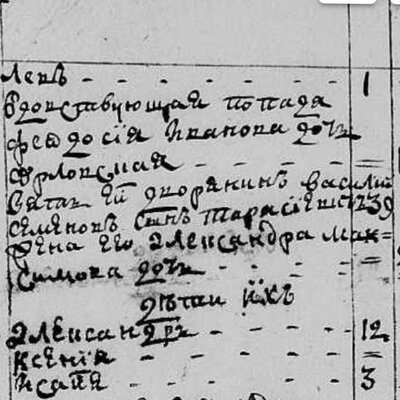 Левъ - - - - - - - 1
Вдовствующая попадя
Феодосія Иванова дочь
Орловская - - - - =
Зятъ ей дворянинъ Василій
Семеновъ сынъ Тарасіевич 39
Жена его Александра Мак=
симова дочь - - - - =
дѣти ихъ
Александръ - - - - - 12
Ксенія - - - - - =
Исаія - - - - - 3